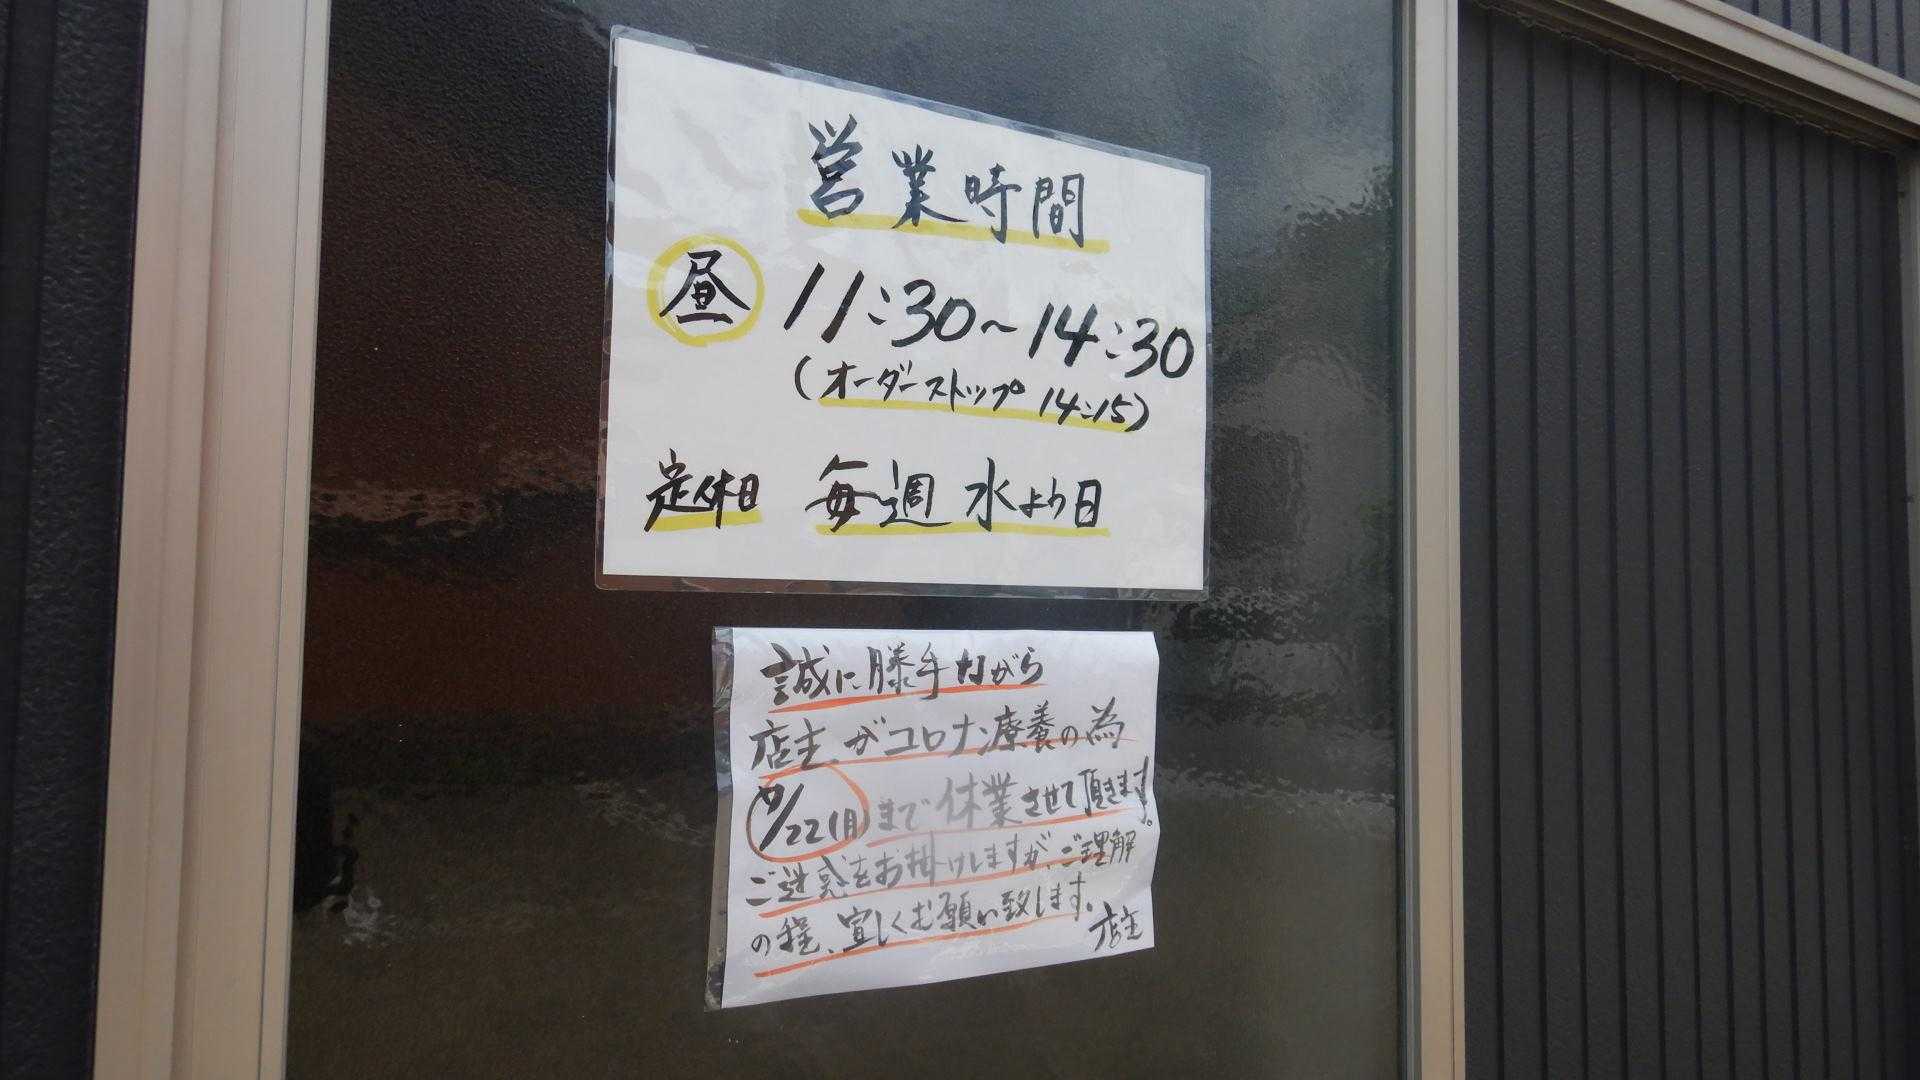 営業時間
昼 11:30~14:30
(オーダーストップ 14:15)
定休日 毎週 水よう日
誠に勝手ながら
店主がコロナ療養の為
8/22(月)まで休業させて頂きます。
ご迷惑をお掛けしますが、ご理解
の程、宜しくお願い致します。
店主